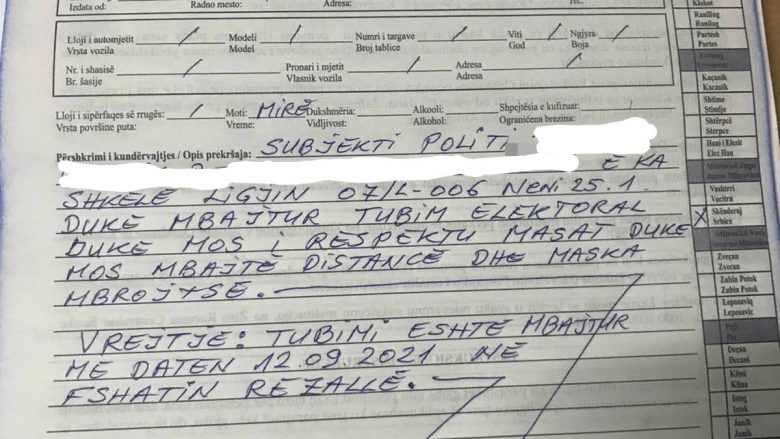 Izdata od: Radno mesto: Adresa: Tel.:
Lloji i automjetit / Modeli / Numri i targave / Viti / Ngjyra /
Vrsta vozila Modeli Broj tablice God Boja
Nr. i shasisë / Pronari i mjetit / Adresa /
Br. šasije Vlasnik vozila Adresa
Lloji i sipërfaqes së rrugës: / Moti: MIRË Dukshmëria: Alkooli: Shpejtësia e kufizuar:
Vrsta površine puta: Vreme: Vidljivost: Alkohol: Ograničena brezina:
Përshkrimi i kundërvajtjes / Opis prekršaja: SUBJEKTI POLITI
E KA
SHKELË LIGJIN 07/L-006 NENI 25.1.
DUKE MBAJTUR TUBIM ELEKTORAL
DUKE MOS I RESPEKTU MASAT DUKE
MOS MBAJTË DISTANCË DHE MASKA
MBROJTSE.
VREJTJE: TUBIMI ESHTË MBAJTUR
ME DATEN 12.09.2021 NË
FSHATIN REZALLË.
Klokot
Ranillug
Ranilug
Partesh
Parteš
Kaçanik
Kacanik
Shtime
Štimlje
Shtërpce
Štrpce
Hani i Elezit
Elez Han
Vushtrri
Vucitrn
X Skënderaj
Srbica
Zveçan
Zvecan
Zubin Potok
Zubin Potok
Leposaviq
Leposavic
Pejë
Pec
Deçan
Decani
Klinë
Klina
Istog
Istok
Junik
Junik